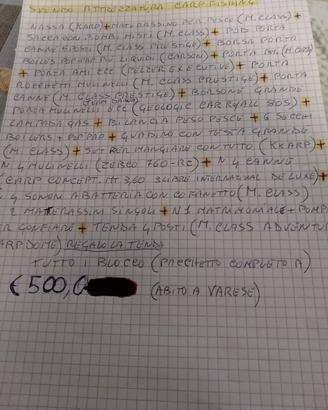 VENDO ATTREZZATURA CARPFISHING
NASSA (KKARP) + MATERASSINO PER PESCE (M. CLASS) +
SACCA CON BOMB. MISTI (M. CLASS) + POD PORTA
CANNE 3 POSTI (M. CLASS PRESTIGE) + BORSA PORTA
BOILES POP-UP PIÙ LIQUIDI (CARSON) + PORTA
+ PORTA AMI ECC (PELZER EXECUTIVE) + PORTA
ROCCHETTI MULINELLI (M. CLASS PRESTIGE) + PORTA
CANNE (M. CLASS PRESTIGE) + BORSONE GRANDE
PORTA MULINELLI ECC (GEOLOGIC CARRYALL 80S) +
LAMPADA GAS + BILANCIA PESO PESCE + 6 SECCHI
BOILERS + POP-UP + GUADINO CON TESTA GRANDE
(M. CLASS) + SET PER MANGIARE CON TUTTO (KKARP) +
N 4 MULINELLI (ZEBCO 760-RE) + N 4 CANNE
(CARP CONCEPT. MT 3,60 3 LIBRE INTERNATIONAL DE LUXE) +
4 SONORI A BATTERIA CON COFANETTO (M. CLASS)
2 MATERASSINI SINGOLI + N 1 MATRIMONIALE + POMPA
PER GONFIARE + TENDA 4 POSTI (M. CLASS ADVENTUR
CARP DOME) REGALO LA TENDA
TUTTO IL BLOCCO (PACCHETTO COMPLETO A)
€ 500,0 (ABITO A VARESE)